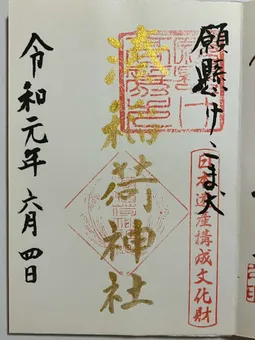 願懸けこま犬
日本遺産構成文化財
稲荷神社
令和元年 六月四日